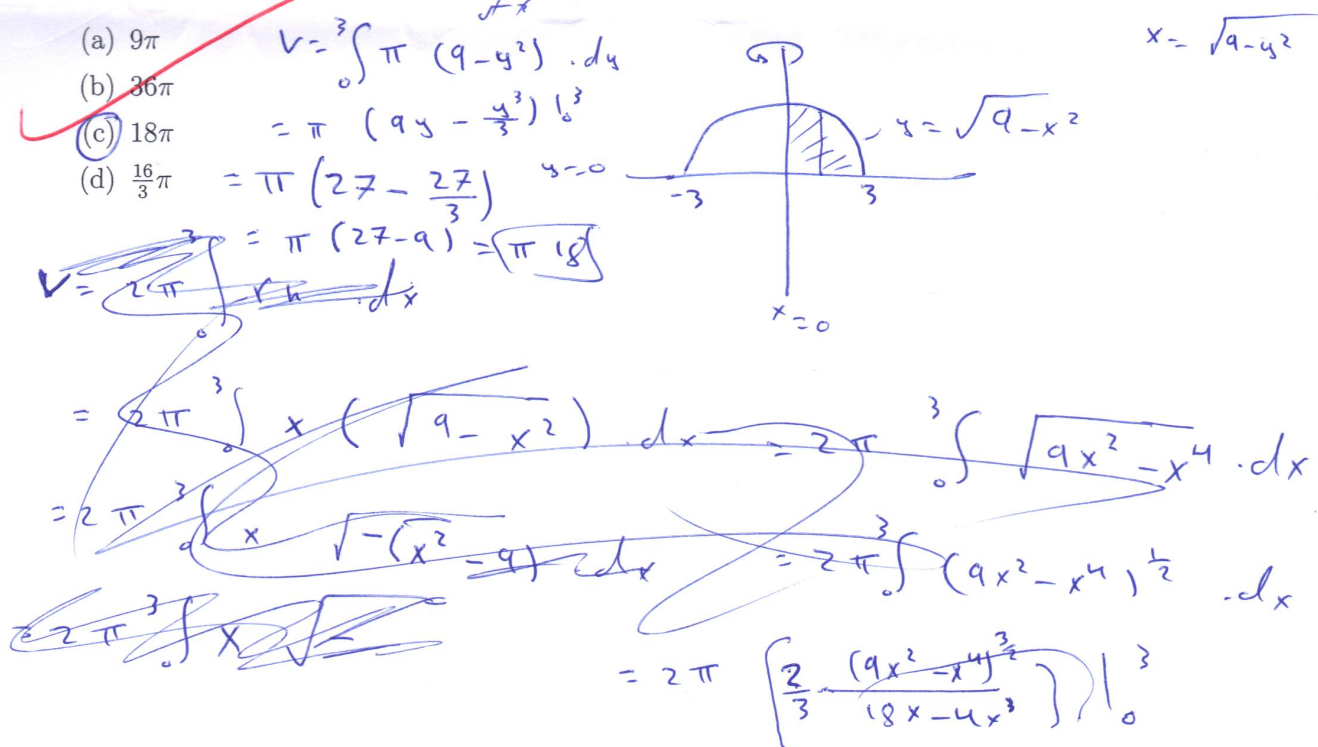 (a) 9π
(b) 36π
(c) 18π
(d) 16/3 π
V = ₀³∫ π (9 - y²) . dy
= π (9y - y³/3) |₀³
= π (27 - 27/3)
= π (27-9) = π 18
x = √(9-y²)
y = √(9-x²)
y=0
-3
3
x=0
V = 2π ₀³∫ r h . dx
= 2π ₀³∫ x (√(9-x²)) . dx = 2π ₀³∫ √(9x²-x⁴) . dx
= 2π ₀³∫ x √(-(x²-9)) dx = 2π ₀³∫ (9x²-x⁴)^(1/2) . dx
= 2π ₀³∫ x √-
= 2π [2/3 . (9x²-x⁴)^(3/2) / (18x-4x³)] |₀³